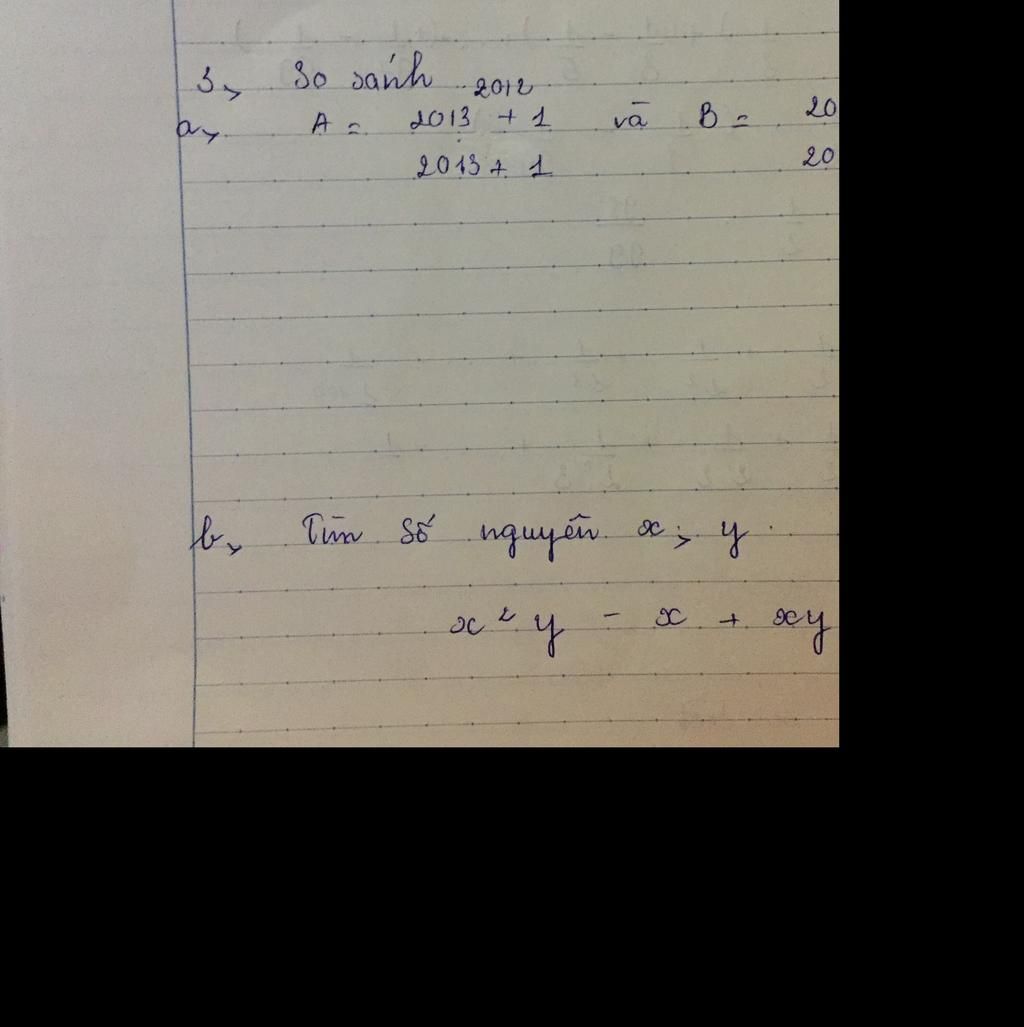 3, So sánh
a, A = 2013^2012 + 1 và B = 20
2013 + 1 20
b, Tìm số nguyên x; y
x² y - x + xy